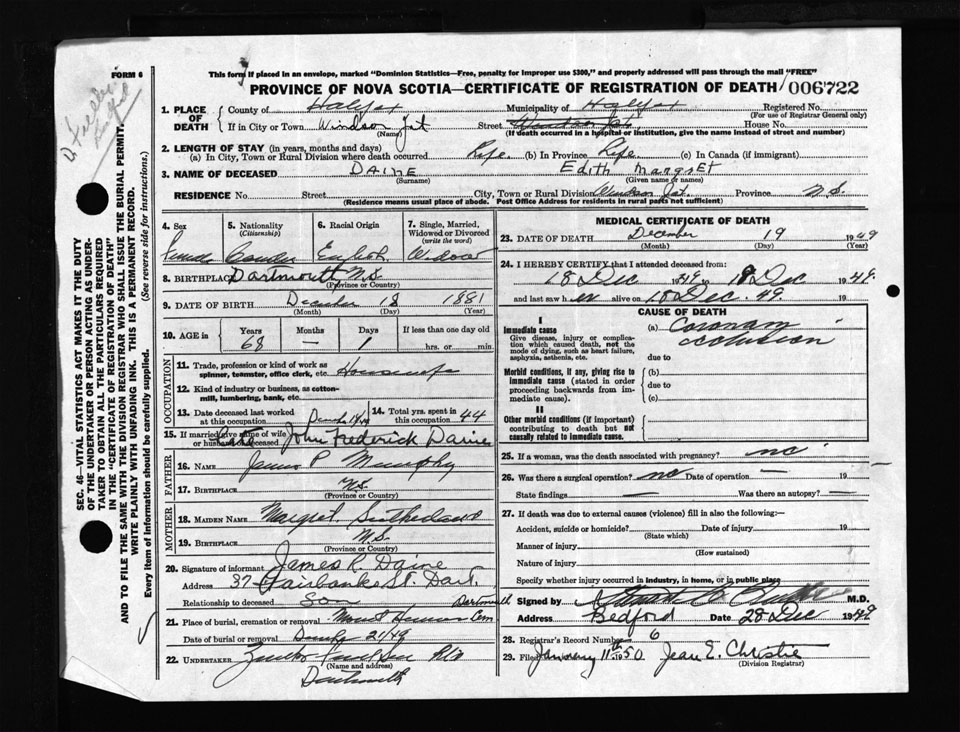 FORM 6
This form if placed in an envelope, marked "Dominion Statistics—Free, penalty for improper use $300," and properly addressed will pass through the mail "FREE"
PROVINCE OF NOVA SCOTIA—CERTIFICATE OF REGISTRATION OF DEATH 006722
1. PLACE OF DEATH County of Halifax Municipality of Halifax Registered No.
(For use of Registrar General only)
If in City or Town Windsor Jct (Name) Street Windsor Jct. House No.
(If death occurred in a hospital or institution, give the name instead of street and number)
2. LENGTH OF STAY (in years, months and days)
(a) In City, Town or Rural Division where death occurred Life. (b) In Province Life. (c) In Canada (if immigrant)
3. NAME OF DECEASED DAINE Edith MargrEt
(Surname) (Given name or names)
RESIDENCE No. Street City, Town or Rural Division Windsor Jct. Province N.S.
(Residence means usual place of abode. Post Office Address for residents in rural parts not sufficient)
4. Sex 5. Nationality (Citizenship) 6. Racial Origin 7. Single, Married, Widowed or Divorced (write the word)
Female English Widow
8. BIRTHPLACE Dartmouth N.S.
(Province or Country)
9. DATE OF BIRTH December 18 1881
(Month) (Day) (Year)
10. AGE in Years Months Days If less than one day old
68 — 1 hrs. or min.
OCCUPATION
11. Trade, profession or kind of work as spinner, teamster, office clerk, etc. Housewife
12. Kind of industry or business, as cotton-mill, lumbering, bank, etc.
13. Date deceased last worked at this occupation 14. Total yrs. spent in this occupation 44
15. If married give name of wife or husband of deceased John Frederick Daine
FATHER
16. NAME James P Murphy
17. BIRTHPLACE N.S.
(Province or Country)
MOTHER
18. MAIDEN NAME Margret Sutherland
19. BIRTHPLACE N.S.
(Province or Country)
20. Signature of informant James R. Daine
Address 37 Fairbanks St. Dart.
Relationship to deceased Son
21. Place of burial, cremation or removal Mount Hermon Cem Dartmouth
Date of burial or removal December 21/49
22. UNDERTAKER
(Name and address)
Dartmouth
MEDICAL CERTIFICATE OF DEATH
23. DATE OF DEATH December 19 1949
(Month) (Day) (Year)
24. I HEREBY CERTIFY that I attended deceased from:
18 Dec 1949 to 18 Dec 1949.
and last saw her alive on 18 Dec. 49. 19
CAUSE OF DEATH
I
Immediate cause
Give disease, injury or complication which caused death, not the mode of dying, such as heart failure, asphyxia, asthenia, etc.
(a) Coronary occlusion
due to
Morbid conditions, if any, giving rise to immediate cause (stated in order proceeding backwards from immediate cause).
(b)
due to
(c)
II
Other morbid conditions (if important) contributing to death but not causally related to immediate cause.
25. If a woman, was the death associated with pregnancy? no
26. Was there a surgical operation? no Date of operation — 19
State findings — Was there an autopsy? —
27. If death was due to external causes (violence) fill in also the following:—
Accident, suicide or homicide? Date of injury 19
(State which)
Manner of injury
(How sustained)
Nature of injury
Specify whether injury occurred in industry, in home, or in public place
Signed by M.D.
Address Bedford Date 28 Dec 1949
28. Registrar's Record Number 6
29. Filed January 11th 1950 Jean E. Christie
(Division Registrar)
SEC. 46—VITAL STATISTICS ACT MAKES IT THE DUTY
OF THE UNDERTAKER OR PERSON ACTING AS UNDER-
TAKER TO OBTAIN ALL THE PARTICULARS REQUIRED
IN THE "CERTIFICATE OF REGISTRATION OF DEATH"
AND TO FILE THE SAME WITH THE DIVISION REGISTRAR WHO SHALL ISSUE THE BURIAL PERMIT.
WRITE PLAINLY WITH UNFADING INK. THIS IS A PERMANENT RECORD.
Every item of information should be carefully supplied. (See reverse side for instructions.)